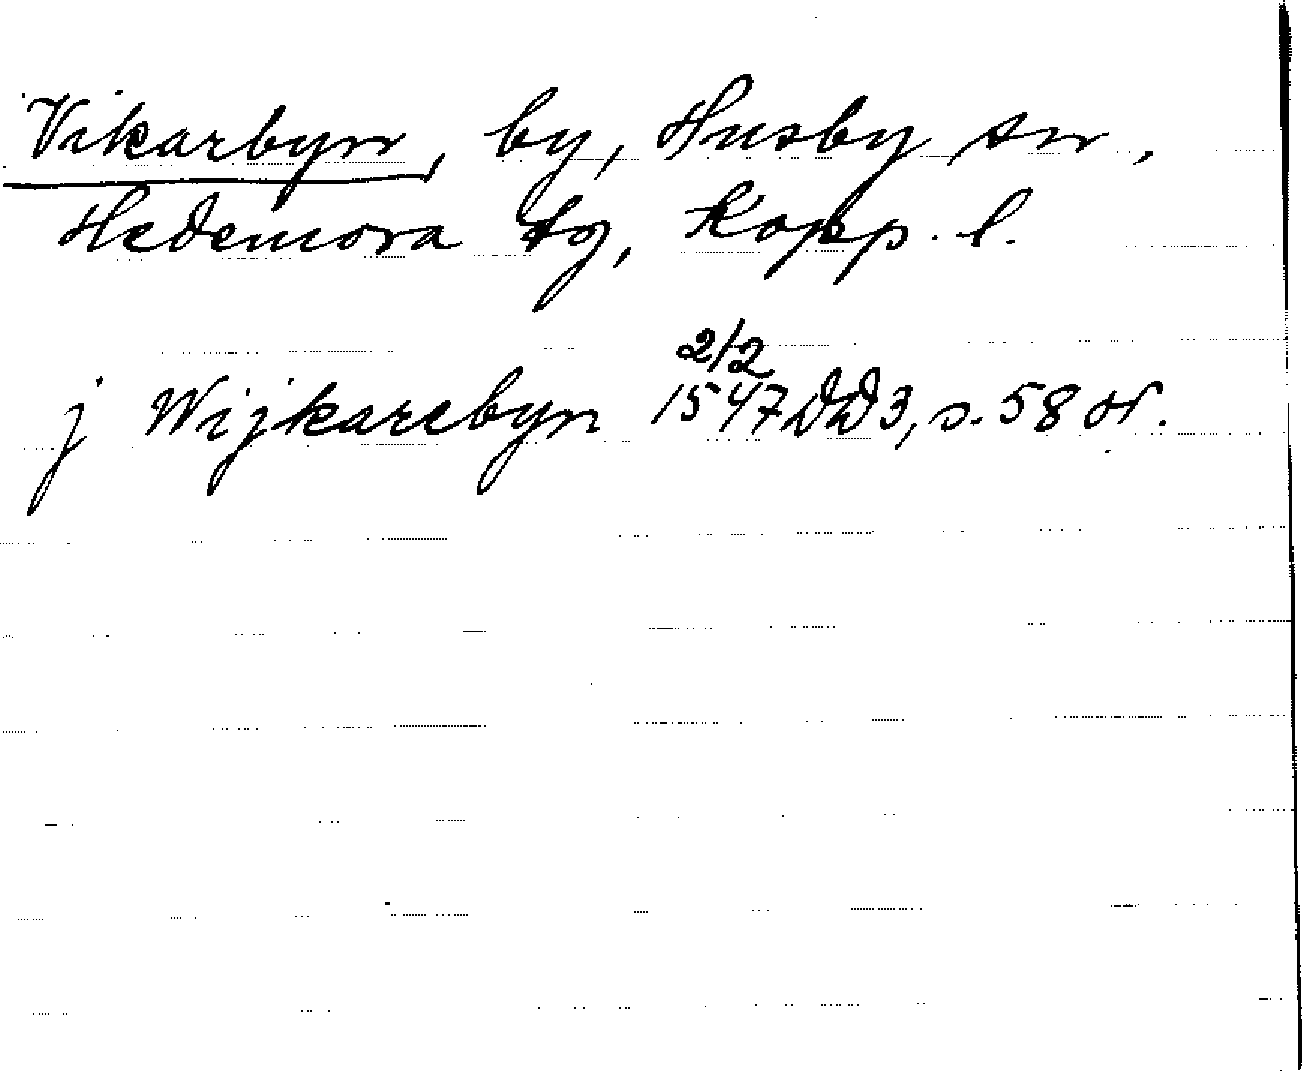 Vikarbyn, by, Husby sn,
Hedemora tg, Kopp. l.
j Wijkarebyn 2/2 1547 DD3, s. 58 H.